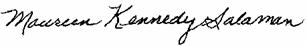 Maureen Kennedy Salaman